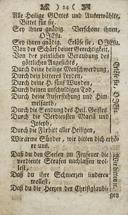 24
Alle Heilige GOttes und Auserwählte,
Bittet für sie.
Sey ihnen gnädig, Verschone ihnen,
O JEsu.
Sey ihnen gnädig, Erlöse sie, O JEsu.
Von der Schärfe deiner Gerechtigkeit,
Von der
göttlichen Angesichts,
Durch deine heilige Menschwerdung,
Durch deine bittere
Durch deine H. fünf Wunden,
Durch deinen unschuldigen Tod,
Durch deine Auferstehung und Him-
melfahrt,
Durch die Sendung des Heil. Geistes
Durch die Verdiensten Mariä und
Joseph,
Durch die Fürbitt aller Heiligen,
Wir arme Sünder, wir bitten dich erhö-
re uns.
Daß du den Seelen im Fegfeuer die
Straffen nachlassen wol-
lest,
Daß du die Herzen der Christglaubi-
Erlöse sie, O JEsu.